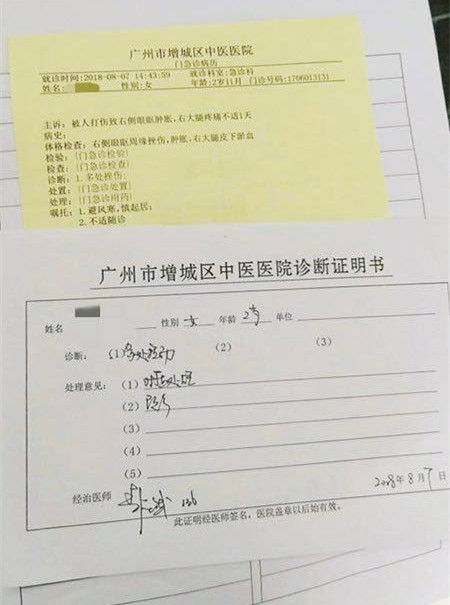 广州市增城区中医医院
门急诊病历
就诊时间:2018-08-07 14:43:59 就诊科室:急诊科
姓名: 性别:女 年龄:2岁11月 门诊号码:1706013131
主诉:被人打伤致右侧眼眶肿胀,右大腿疼痛不适1天
病史:
体格检查:右侧眼眶周缘挫伤,肿胀,右大腿皮下淤血
检验:(门急诊检验)
检查:(门急诊检查)
诊断:1.多处挫伤;
处置:(门急诊处置)
处理:(门急诊用药)
嘱托:1.避风寒,慎起居;
2.不适随诊
广州市增城区中医医院诊断证明书
姓名 性别 女 年龄 2岁 单位
诊断: (1)多处挫伤 (2) (3)
处理意见: (1)对症处理
(2)随诊
(3)
(4)
(5)
经治医师 2018年8月7日
此证明经医师签名,医院盖章以后始有效。